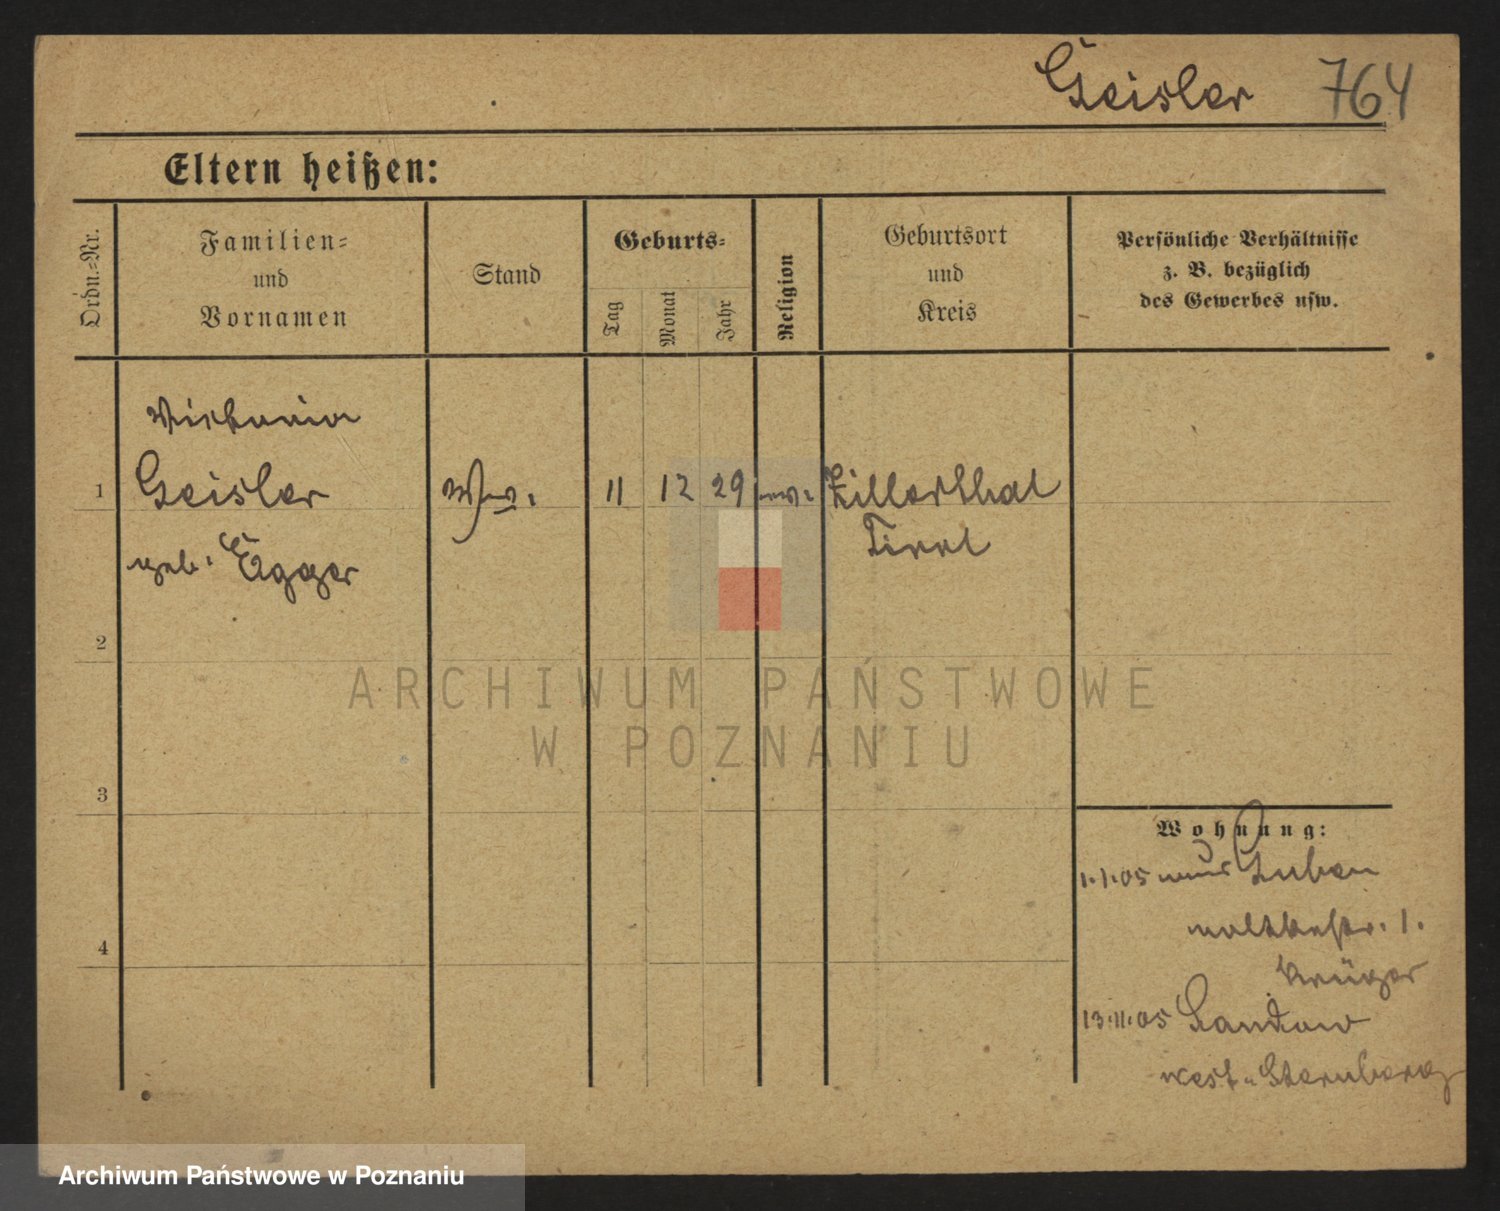 Geisler 764
Eltern heißen:
Ordn.-Nr.
Familien-
und
Vornamen
Stand
Geburts-
Tag
Monat
Jahr
Religion
Geburtsort
und
Kreis
Persönliche Verhältnisse
z. B. bezüglich
des Gewerbes usw.
Victoria
1 Geisler Ww. 11 12 29 ev. Zillerthal
geb. Egger Tirol
2
ARCHIWUM PAŃSTWOWE
W POZNANIU
3
Wohnung:
1.1.05 nur Luban
Moltkestr. 1.
Krüger
4
13.11.05 Landow
West-Sternberg
Archiwum Państwowe w Poznaniu